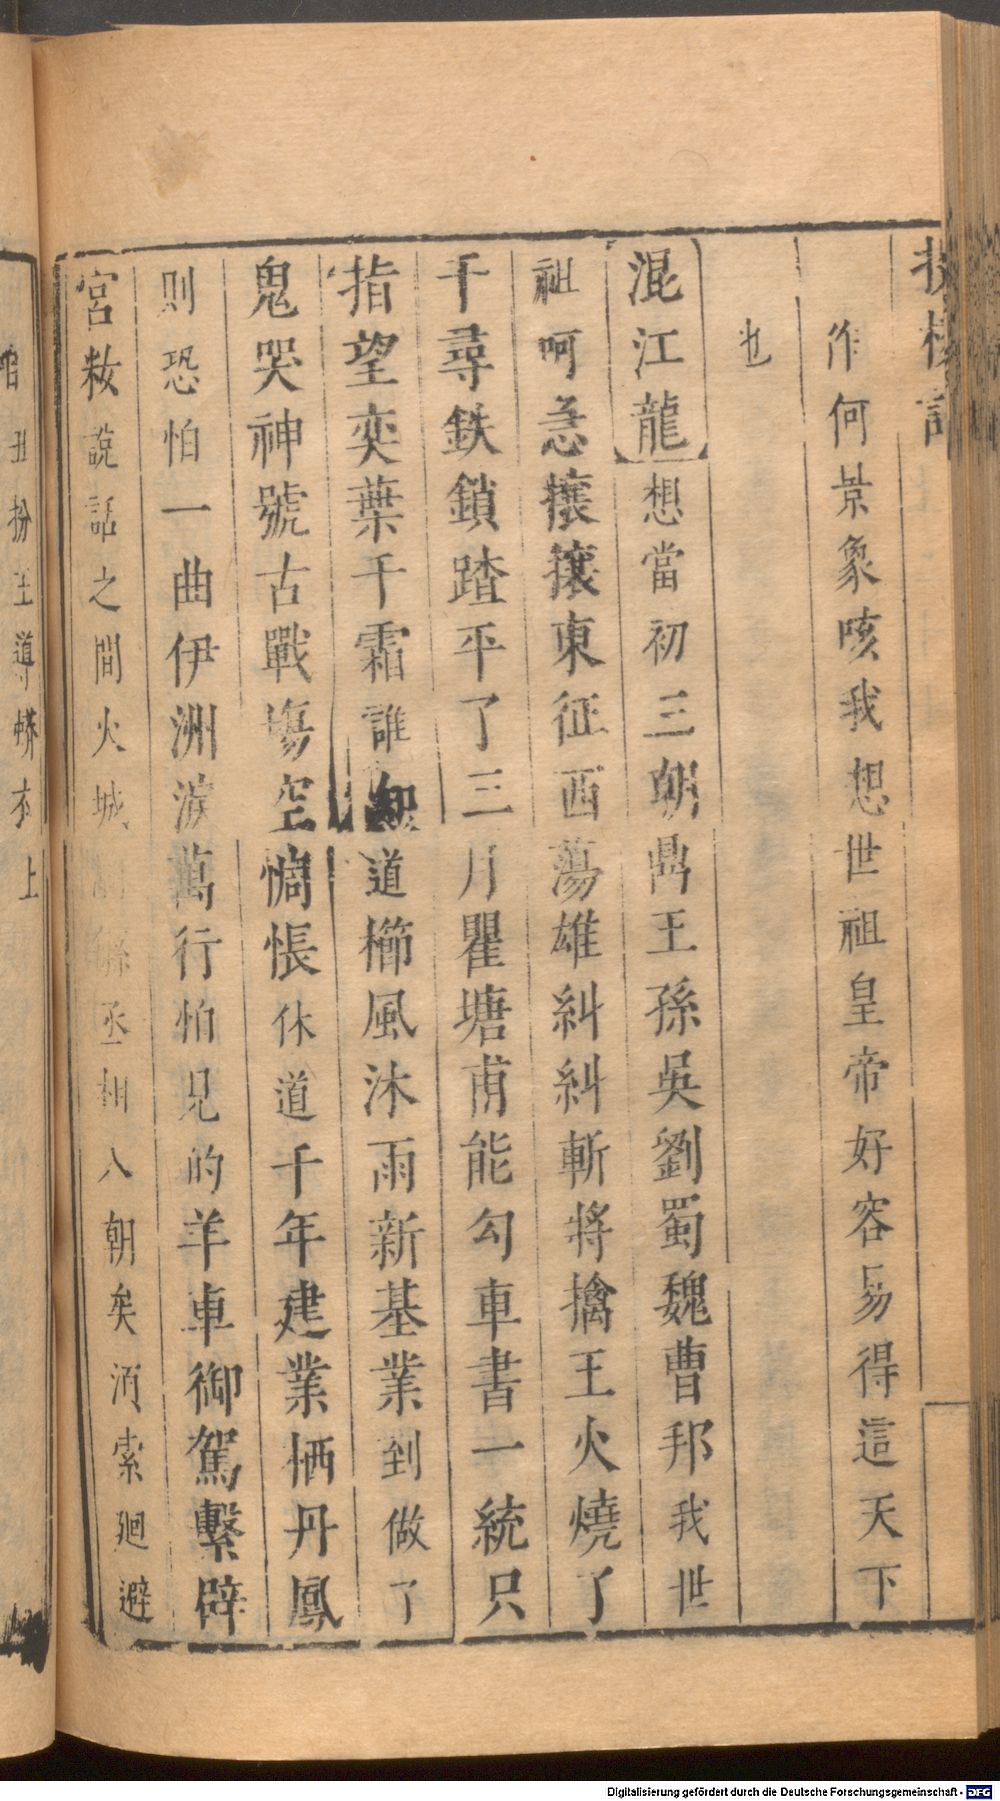 投梭記
作何景象咳我想世祖皇帝好容易得這天下
也
混江龍想當初三朝鼎王孫吳劉蜀魏曹邦我世
祖呵急攘攘東征西蕩雄糾糾斬將擒王火燒了
千尋鉄鎖踏平了三月瞿塘甫能勾車書一統只
指望奕葉千霜誰知道櫛風沐雨新基業到做了
鬼哭神號古戰塲空惆悵休道千年建業栖丹鳳
則恐怕一曲伊洲淚萬行怕見的羊車御駕繫辟
宮敉說話之間火城丞相入朝矣湏索廻避
丑扮王導幞衣上
Digitalisierung gefördert durch die Deutsche Forschungsgemeinschaft - DFG